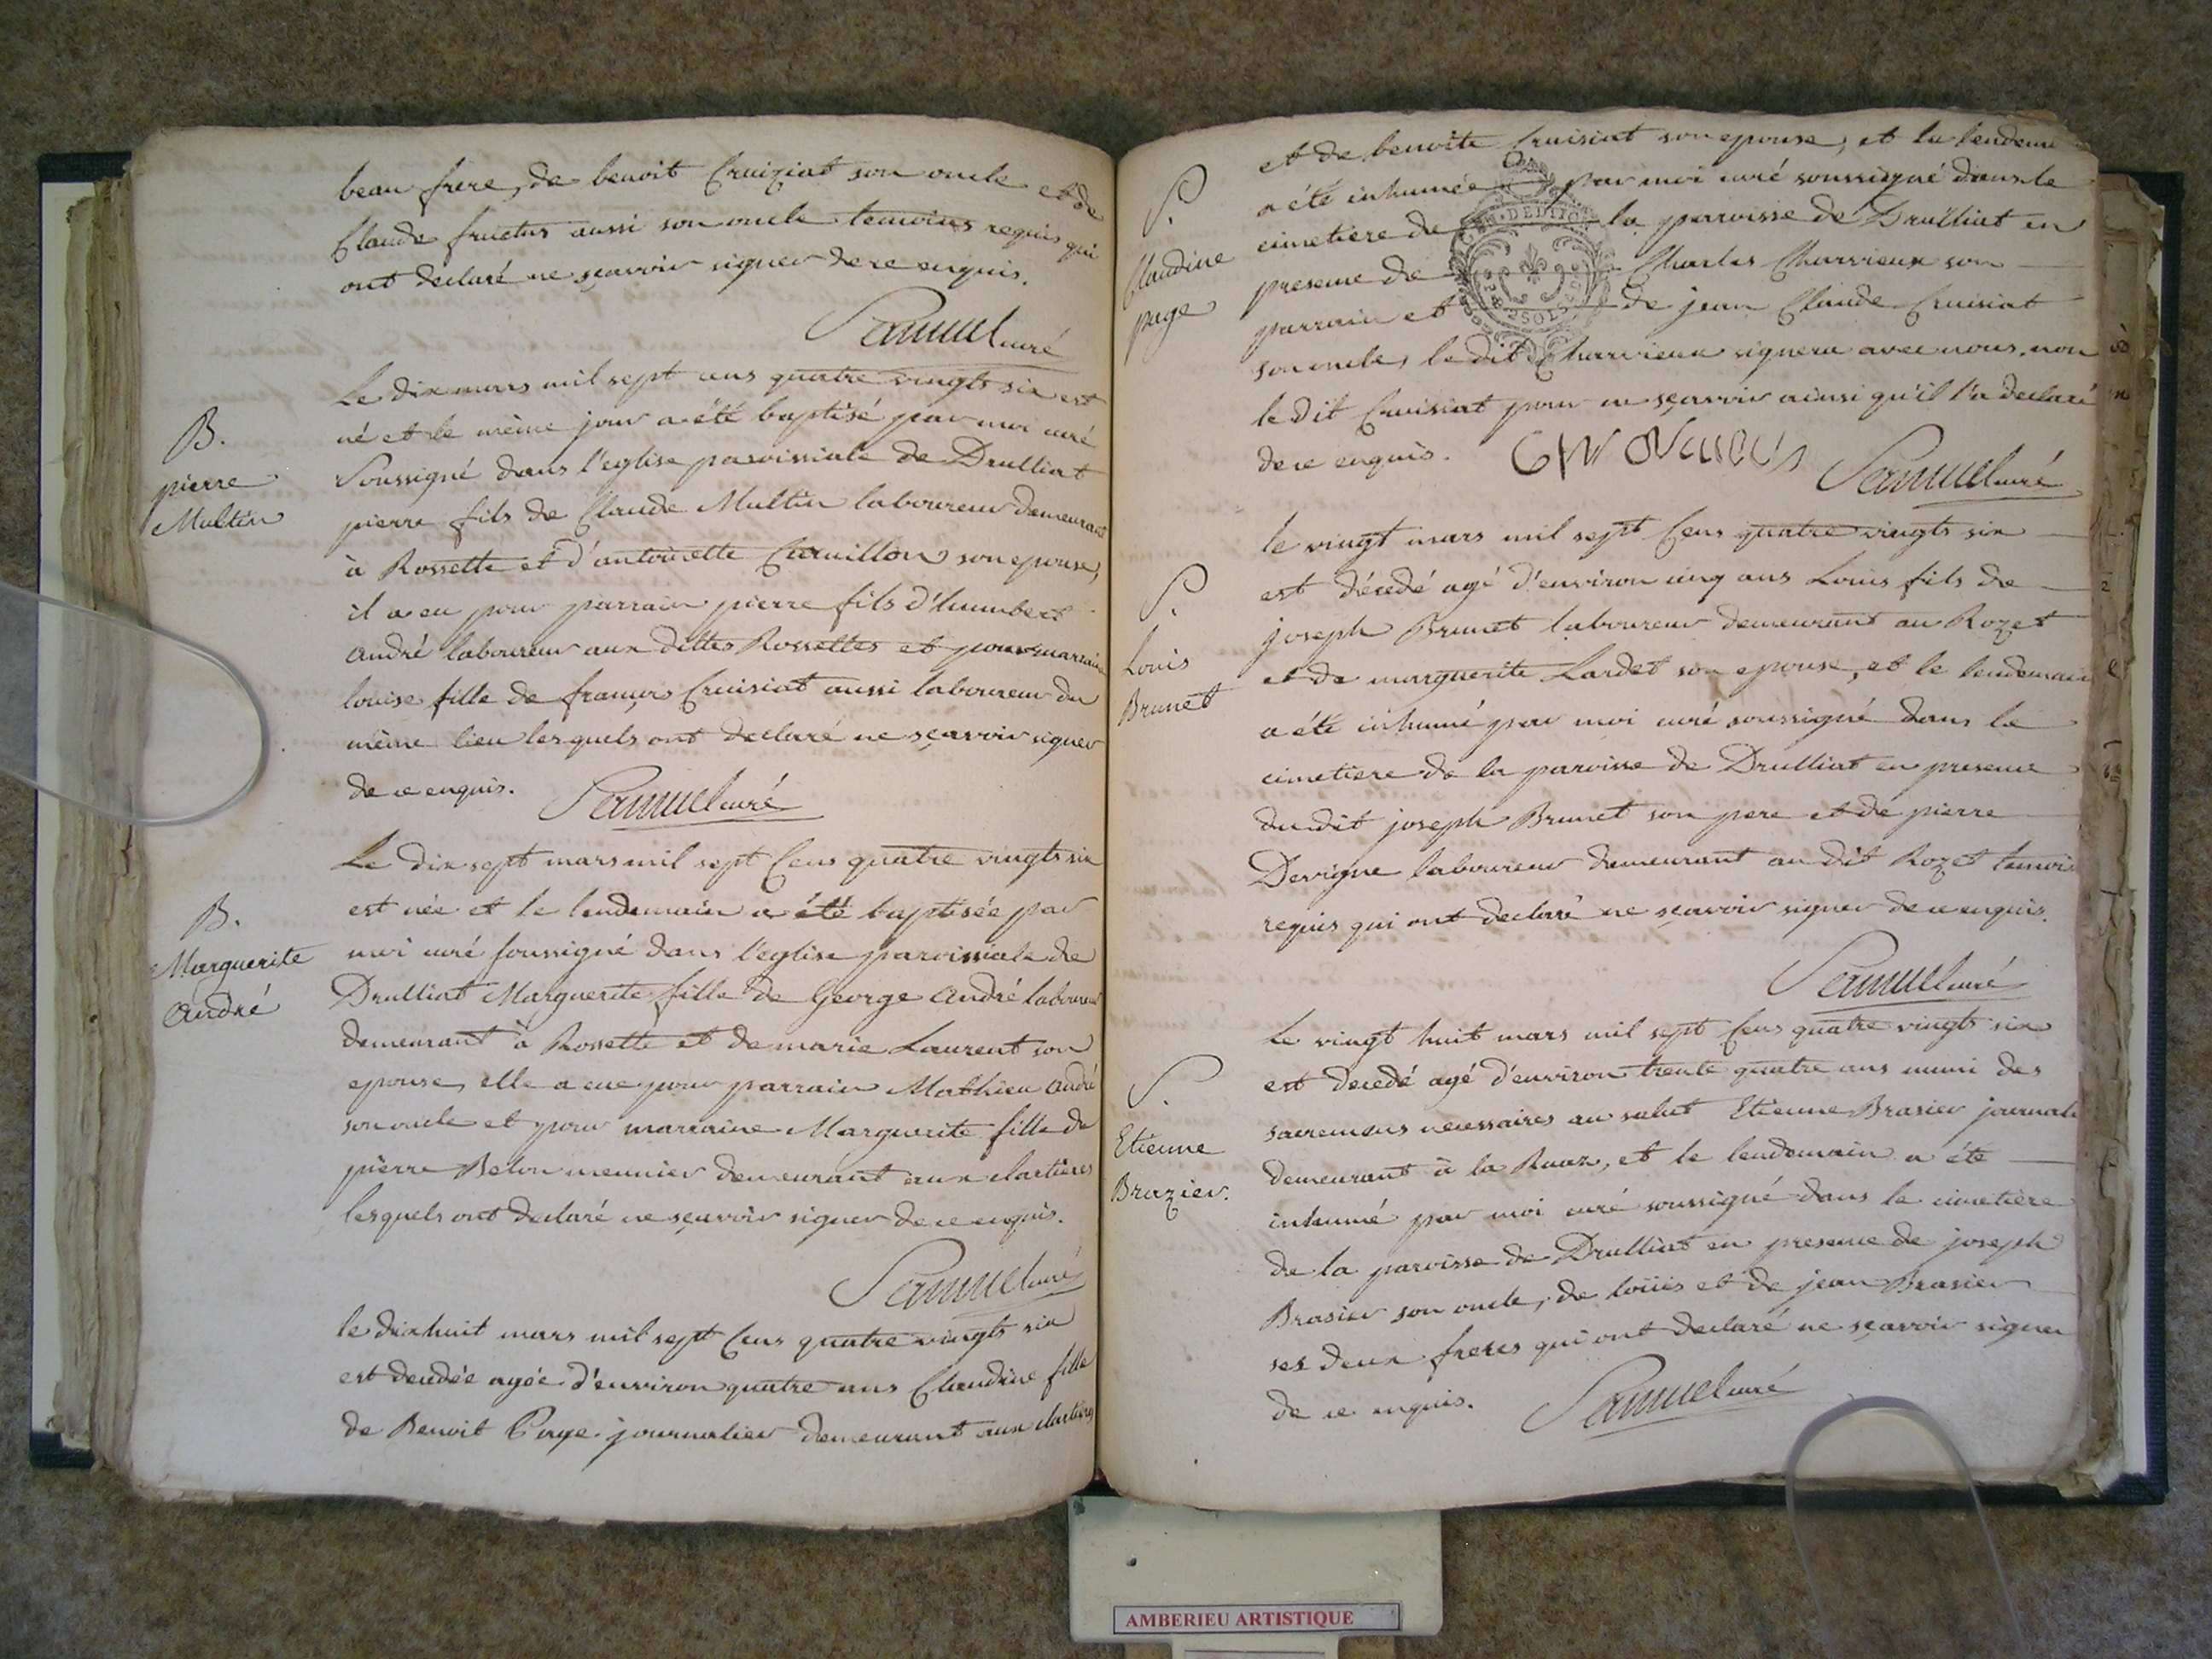 beau frere, de benoit Cruiziat son oncle et de
Claude fructus aussi son oncle temoins requis qui
ont declaré ne sçavoir signer de ce enquis.
Samuel curé
B.
pierre
Multin
Le dix mars mil sept cens quatre vingts six est
né et le même jour a été baptisé par moi curé
Soussigné dans l'eglise paroissiale de Drulliat
pierre fils de Claude Multin laboureur demeurant
à Rossette et d'antoinette Curvillon son epouse,
il a eu pour parrain pierre fils d'humbert
andré laboureur aux dittes Rossettes et pour marraine
louise fille de françois Cruisiat aussi laboureur du
même lieu lesquels ont declaré ne sçavoir signer
de ce enquis. Samuel curé
B.
Marguerite
André
Le dix sept mars mil sept Cens quatre vingts six
est née et le lendemain a été baptisée par
moi curé soussigné dans l'eglise paroissiale de
Drulliat Marguerite fille de George André laboureur
demeurant à Rossette et de marie Laurent son
epouse, elle a eue pour parrain Mathieu André
son oncle et pour marraine Marguerite fille de
pierre Belon meunier demeurant aux clartieres
lesquels ont declaré ne sçavoir signer de ce enquis.
Samuel curé
le dix huit mars mil sept Cens quatre vingts six
est decedée agée d'environ quatre ans Claudine fille
de Benoit Page journalier demeurant aux clartieres
S.
Claudine
page
et de benoite Cruisiat son epouse, et le lendemain
a été inhumée par moi curé soussigné dans le
cimetiere de la paroisse de Drulliat en
presence de Charles Charvieux son
parrain et de jean Claude Cruisiat
son oncle, le dit Charvieux signera avec nous, non
le dit Cruisiat pour ne sçavoir ainsi qu'il l'a declaré
de ce enquis. Samuel curé
S.
Louis
Brunet
le vingt mars mil sept Cens quatre vingts six
est décedé agé d'environ cinq ans Louis fils de
joseph Brunet laboureur demeurant au Rozet
et de marguerite Lardet son epouse, et le lendemain
a été inhumé par moi curé soussigné dans le
cimetiere de la paroisse de Drulliat en presence
du dit joseph Brunet son pere et de pierre
Devigne laboureur demeurant au dit Rozet temoins
requis qui ont declaré ne sçavoir signer de ce enquis.
Samuel curé
S.
Etienne
Brazier.
Le vingt huit mars mil sept Cens quatre vingts six
est decedé agé d'environ trente quatre ans muni des
sacremens necessaires au salut Etienne Brasier journali
demeurant à la Ruaz, et le lendemain a été
inhumé par moi curé soussigné dans le cimetiere
de la paroisse de Drulliat en presence de joseph
Brasier son oncle, de loüis et de jean Brasier
ses deux freres qui ont declaré ne sçavoir signer
de ce enquis. Samuel curé
AMBERIEU ARTISTIQUE